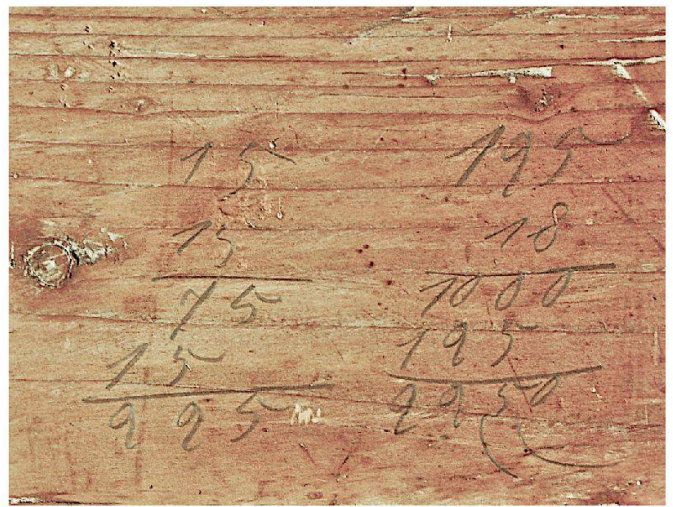 15
15
75
15
225
125
18
1000
125
2250